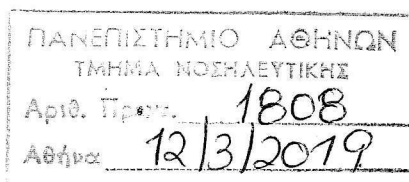 ΠΑΝΕΠΙΣΤΗΜΙΟ ΑΘΗΝΩΝ
ΤΜΗΜΑ ΝΟΣΗΛΕΥΤΙΚΗΣ
Αριθ. Πρωτ. 1808
Αθήνα 12/3/2019